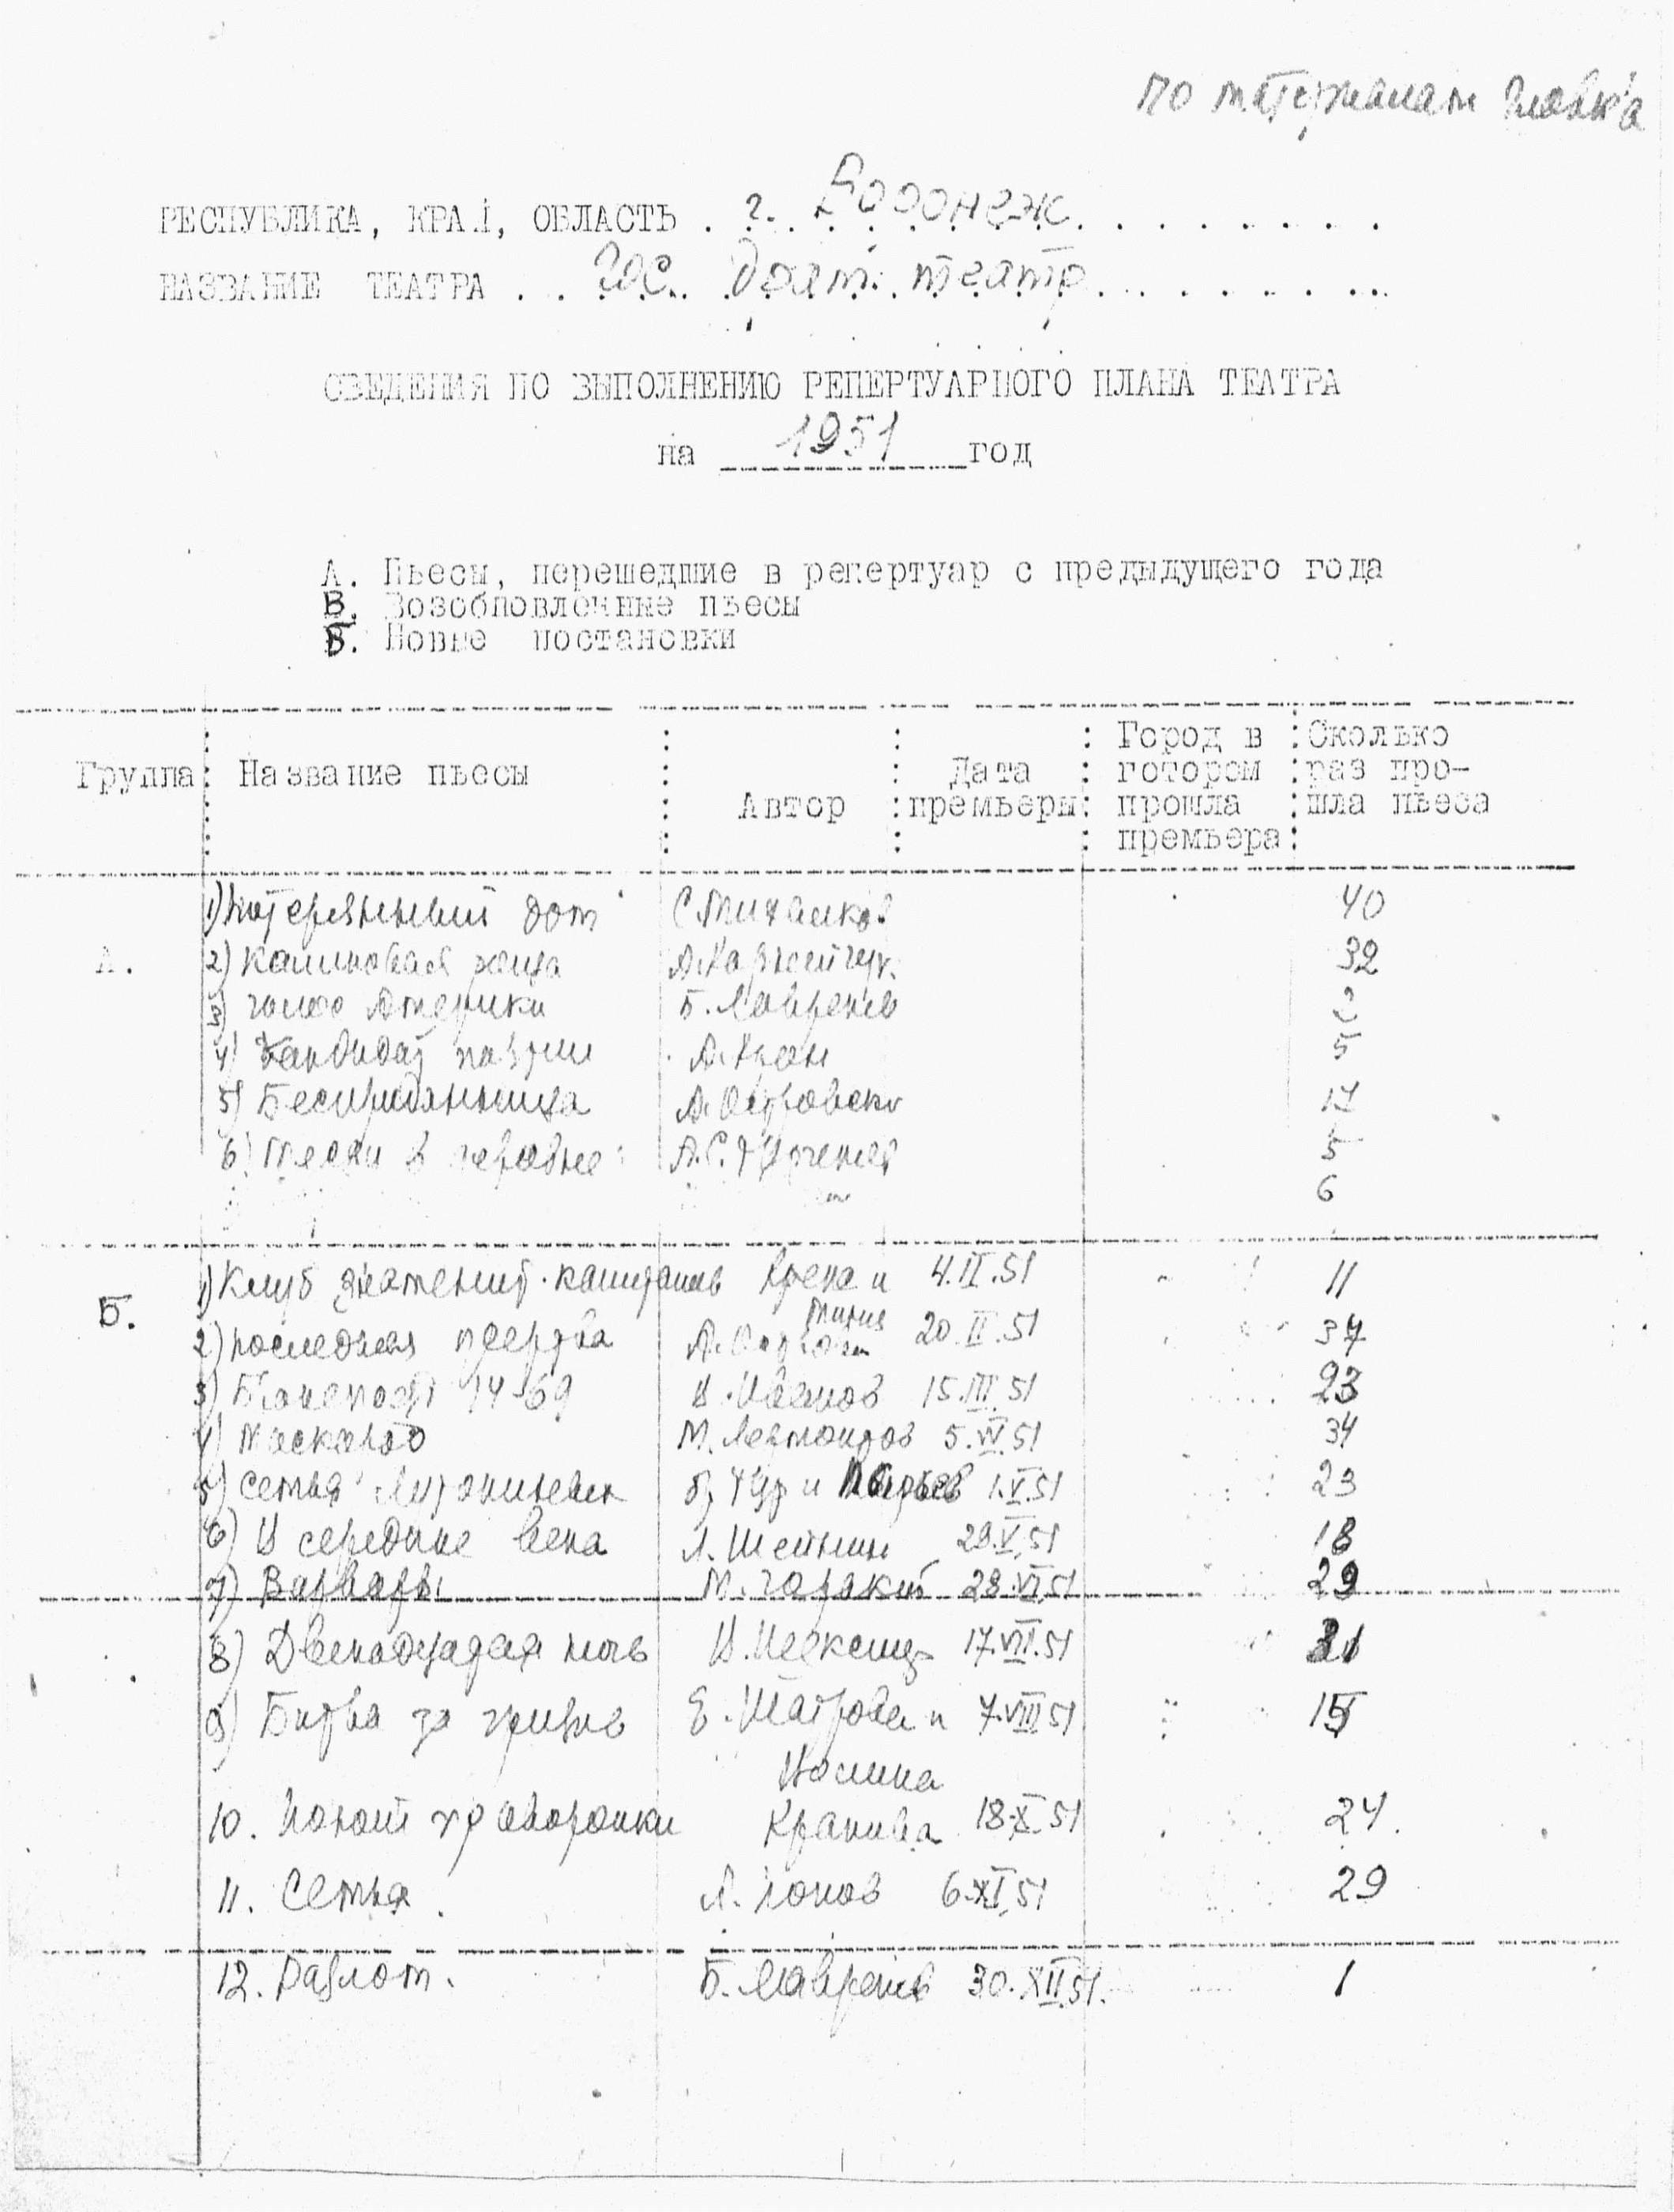 по материалам Главк'а
РЕСПУБЛИКА, КРАЙ, ОБЛАСТЬ . г. Воронеж
НАЗВАНИЕ ТЕАТРА . . Гос. Драм. театр
СВЕДЕНИЯ ПО ВЫПОЛНЕНИЮ РЕПЕРТУАРНОГО ПЛАНА ТЕАТРА
на 1951 год
А. Пьесы, перешедшие в репертуар с предыдущего года
В. Возобновленные пьесы
Б. Новые постановки
Группа Название пьесы Автор Дата премьеры Город в готором прошла премьера Сколько раз прошла пьеса
1) Потерянный дом С. Михалков 40
А. 2) Калиновая роща А. Корнейчук 32
3) Голос Америки Б. Лавренев
4) Кандидат партии А. Крон 5
5) Бесприданница А. Островск 17
6) Месяц в деревне А.С. Тургенев 5
6
Б. 1) Клуб знаменит. капитанов Крепс и 4.II.51 11
Минц
2) Последняя жертва А. Островск 20.II.51 37
3) Бронепоезд 14-69 В. Иванов 15.III.51 23
4) Маскарад М. Лермонтов 5.IV.51 34
5) Семья Лутониных бр Тур и Пырьев 1.V.51 23
6) В середине века Л. Шейнин 29.V.51 18
7) Варвары М. Горький 28.VI.51 29
8) Двенадцатая ночь В. Шекспир 17.VII.51
9) Битва за жизнь Е. Шатрова и 7.VIII.51 15
10. Поют жаворонки Крапива 18.X.51 24.
11. Семья. Попов 6.XI.51 29
12. Разлом. Б. Лавренев 30.XII.51. 1